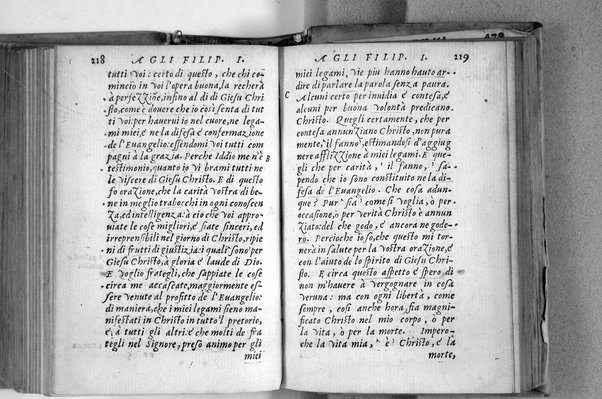 218 A GLI FILIP. I.
tutti voi: certo di questo, che chi co-
mincio in voi l'opera buona, la recherà
à perfezzione, infino al dì di Giesu Chri
sto, come è dovere che io così senta di tut
ti voi: per hauerui io nel cuore, ne lega-
mi miei, e ne la difesa e confermazione
de l'Euangelio: essendomi voi tutti com
pagni à la grazia. Perche Iddio me n'è B
testimonio, quanto io vi brami tutti ne
le viscere di Giesu Christo. E di questo
fo orazione, che la carità vostra di be-
ne in meglio trabocchi in ogni conoscen
za, ed intelligenza: à ciò che voi appro-
uiate le cose migliori, e siate sinceri, ed
irreprensibili nel giorno di Christo, ripie
ni di frutti di giustizia: i quali sono per
Giesu Christo, à gloria e laude di Dio.
E voglio frategli, che sappiate le cose
circa me accascate, maggiormente es-
sere venute al profitto de l'Euangelio:
di maniera, che i miei legami sieno ma-
nifestati in Christo in tutto'l pretorio,
e, à tutti gli altri: e che molti de fra
tegli nel Signore, preso animo per gli
miei
A GLI FILIP. I. 219
miei legami, vie piu hanno hauto ar-
dire di parlare la parola senza paura.
C Alcuni certo per inuidia e contesa, e
alcuni per buona volontà predicano
Christo. Quegli certamente, che per
contesa annunziano Christo, non pura
mente, il fanno, estimandosi d'aggiu
nere afflizzione à miei legami. E que-
gli che per carità, il fanno, sa-
pendo che io sono constituito ne la di-
fesa de l'Euangelio. Che cosa adun-
que? Pur sia come si voglia, ò per
occasione, ò per verità Christo è annun
ziato: del che godo, e ancora ne gode-
rò. Percioche io so, che questo mi tor-
nerà in salute per la vostra orazione, e
con l'aiuto de lo spirito di Giesu Chri-
sto. E circa questo aspetto e spero, di
non m'hauere à vergognare in cosa
veruna: ma con ogni libertà, come
sempre, così anche hora, sia magni-
ficato Christo nel mio corpo, ò per
la vita, ò per la morte. Impero-
che la vita mia, è Christo, e la
morte,